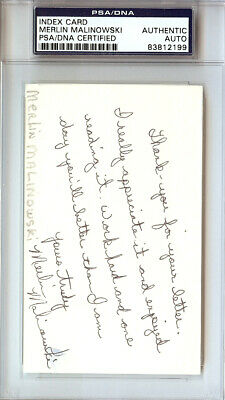 PSA/DNA
INDEX CARD
MERLIN MALINOWSKI
PSA/DNA CERTIFIED
AUTHENTIC
AUTO
83812199
Thank you for your letter.
I really appreciate it and enjoyed
reading it. Work hard and one
day you'll better than I am
yours truly
Merlin Malinowski
MERLIN MALINOWSKI